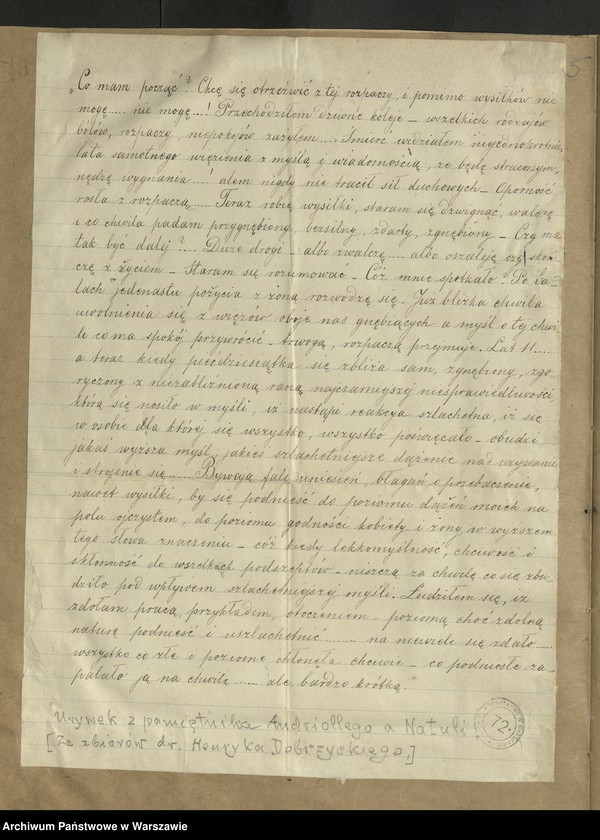 „Co mam począć? Chcę się otrzeźwić z tej rozpaczy, i pomimo wysiłków nie
mogę..... nie mogę...! Przechodziłem dziwne koleje – wszelkich rodzajów
bólów, rozpaczy, niepokojów zażyłem.... Śmierć widziałem niejednokrotnie
lata samotnego więzienia z myślą i wiadomością, że będę straconym,
nędzę wygnania....! alem nigdy nie tracił sił duchowych – Oporność
rosła z rozpaczą..... Teraz robię wysiłki, staram się dźwignąć, walczę
i co chwila padam przygnębiony, bezsilny, zdarty, zgnębiony – Czy ma
tak być dalej?.... Dwie drogi – albo zwalczę..... albo oszaleję czy skoń-
czę z życiem – Staram się rozumować – Cóż mnie spotkało? Po la-
tach jedenastu pożycia z żoną rozwodzę się. Już blizka chwila
uwolnienia się z więzów oboje nas gnębiących a myśl o tej chwi-
li co ma spokój przywrócić – trwogą, rozpaczą przejmuje. Lat 11....
a teraz kiedy pięćdziesiątka się zbliża sam, zgnębiony, zgo-
ryczony z niezabliźnioną raną najczarniejszej niesprawiedliwości
którą się nosiło w myśli, iż nastąpi reakcya szlachetna, iż się
w osobie dla której się wszystko, wszystko poświęcało – obudzi
jakaś wyższa myśl, jakieś szlachetniejsze dążenie nad używanie
i strojenie się..... Bywają fale uniesień, błagań o przebaczenie,
nawet wysiłki, by się podnieść do poziomu dążeń moich na
polu ojczystem, do poziomu godności kobiety i żony w wyższem
tego słowa znaczeniu – cóż kiedy lekkomyślność, chciwość i
skłonność do wszelkich podszeptów – niszczą za chwilę co się zbu-
dziło pod wpływem szlachetniejszej myśli. Łudziłem się, iż
zdołam pracą, przykładem, otoczeniem – poziomą choć zdolną
naturę podnieść i uszlachetnić ...... na niewiele się zdało.....
wszystko co złe i poziome chłonęła chciwie – co podniosłe za-
palało ją na chwilę ..... ale bardzo krótką."
Urywek z pamiętnika Andriollego a Natuli
[Ze zbiorów dr. Henryka Dobrzyckiego.]
72.
Archiwum Państwowe w Warszawie